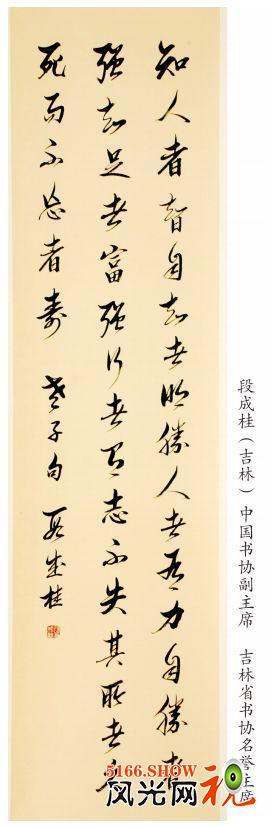 知人者智自知者明勝人者有力自勝者
强知足者富强行者有志不失其所者久
死而不忘者寿 老子句 段成桂
段成桂（吉林）中国书协副主席 吉林省书协名誉主席
5166.SHOW
风光网视